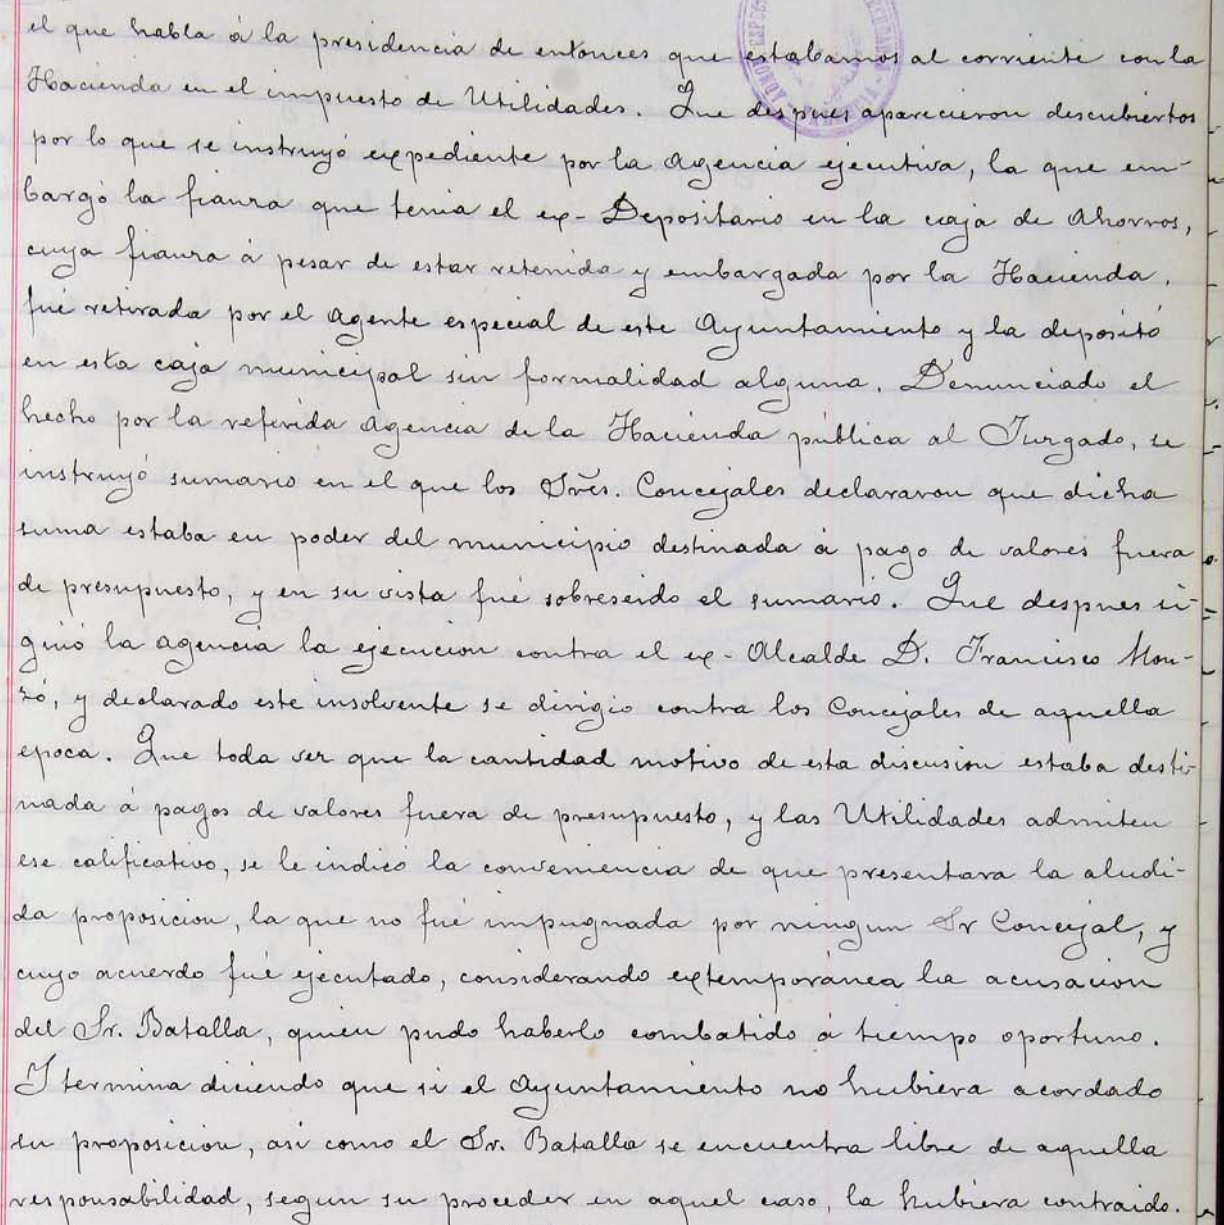 el que habla á la presidencia de entonces que estabamos al corriente con la
Hacienda en el impuesto de Utilidades. Que despues aparecieron descubiertos
por lo que se instruyó expediente por la Agencia ejecutiva, la que em-
bargó la fianza que tenia el ex-Depositario en la caja de Ahorros,
cuya fianza á pesar de estar retenida y embargada por la Hacienda,
fué retirada por el Agente especial de este Ayuntamiento y la depositó
en esta caja municipal sin formalidad alguna. Denunciado el
hecho por la referida Agencia de la Hacienda pública al Juzgado, se
instruyó sumario en el que los Sres. Concejales declararon que dicha
suma estaba en poder del municipio destinada á pago de valores fuera
de presupuesto, y en su vista fué sobreseido el sumario. Que despues si-
guió la agencia la ejecucion contra el ex-Alcalde D. Francisco Mon-
zó, y declarado este insolvente se dirigio contra los Concejales de aquella
epoca. Que toda vez que la cantidad motivo de esta discusion estaba desti-
nada á pagos de valores fuera de presupuesto, y las Utilidades admiten
ese calificativo, se le indicó la conveniencia de que presentara la aludi-
da proposicion, la que no fué impugnada por ningun Sr Concejal, y
cuyo acuerdo fué ejecutado, considerando extemporánea la acusacion
del Sr. Batalla, quien pudo haberlo combatido á tiempo oportuno.
Y termina diciendo que si el Ayuntamiento no hubiera acordado
su proposicion, asi como el Sr. Batalla se encuentra libre de aquella
responsabilidad, segun su proceder en aquel caso, la hubiera contraido.